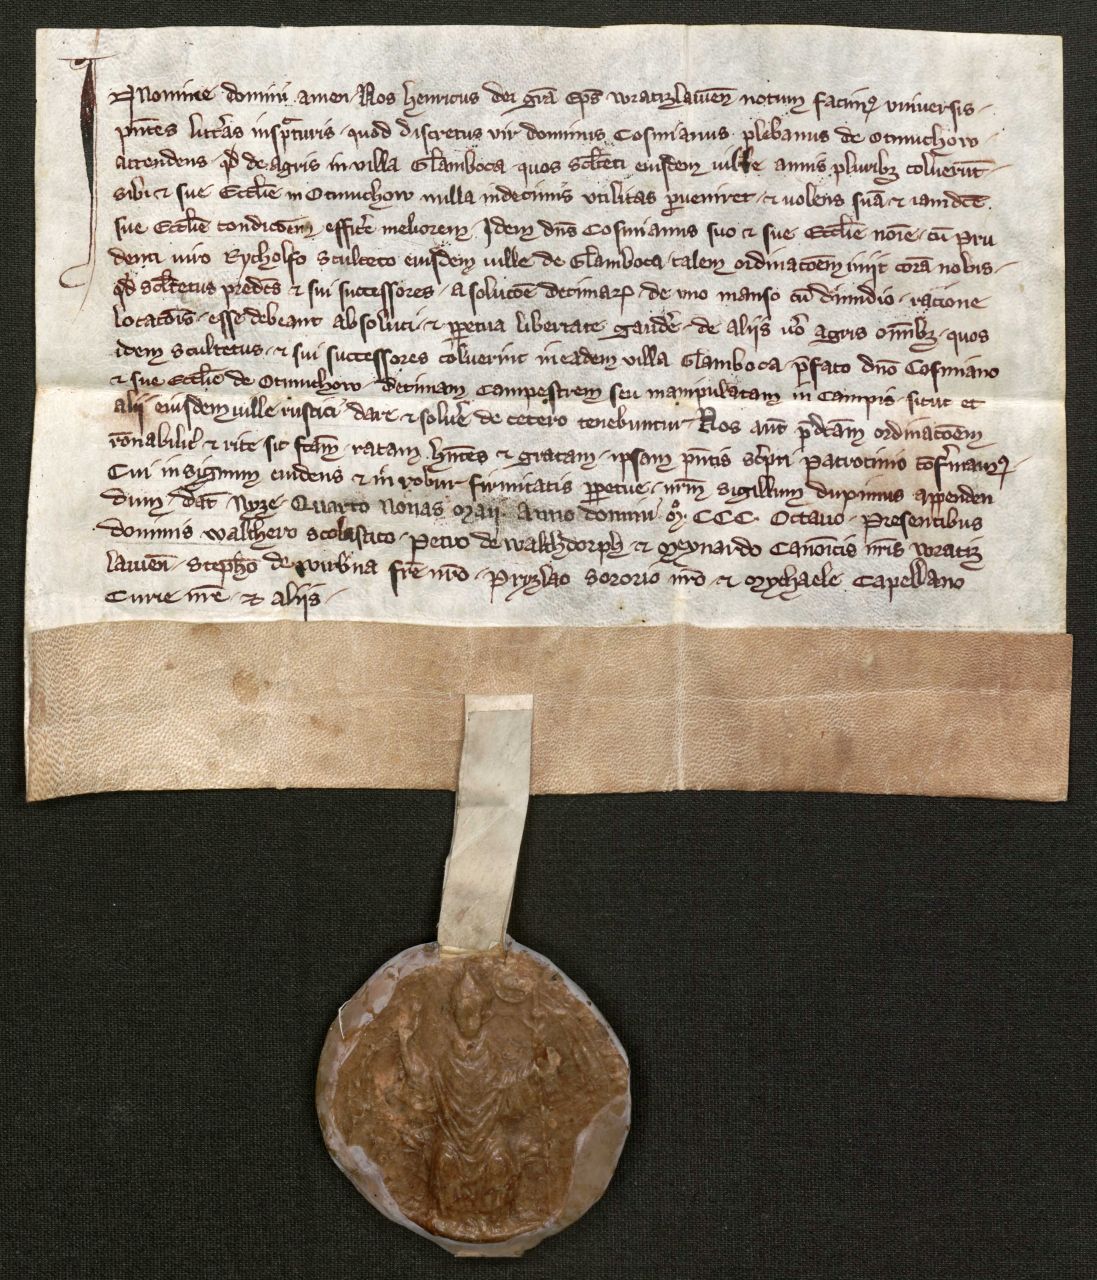 In Nomine domini amen Nos henricus dei grā Ep̄s wratizlauien̄ notum facimꝰ vniuersis
pn̄tes litt̄as insp̄cturis quod discretus vir dominus Cosmianus plebanus de Otmuchow
attendens qd̄ de agris in villa Glamboca quos sc̄lteti eiusdem ville annis pluribꝫ coluerūt
sibi ⁊ sue Eccl̄ie in Otmuchow nulla in decimis vtilitas perueniret ⁊ uolens suā ⁊ iam dc̄e
sue Eccl̄ie condic̄oem effic̄e meliorem Idem dn̄s Cosmianus suo ⁊ sue Eccl̄ie noīe cū pru
denti uiro Rycholfo Sculteto eiusdem uille de Glamboca talem ordinac̄oem iniit corā nobis
qd̄ sc̄ltetus predc̄s ⁊ sui successores a soluc̄oe decimarꝝ de vno manso cū dimidio racione
locac̄ois esse debeant absoluti ⁊ ꝑpetua libertate gaud̄e de aliis ūo agris om̄ibꝫ quos
idem scultetus ⁊ sui successores coluerint in eadem villa Glamboca p̄fato dn̄o Cosmiano
⁊ sue Eccl̄ie de Otmuchow decimam campestrem seu manipulatam in campis sicut et
alii eiusdem uille rustici dare ⁊ solūe de cetero tenebuntur Nos aut̄ p̄dc̄am ordinac̄oem
rōnabilit̄ ⁊ rite sic fc̄am ratam hn̄tes ⁊ gratam ipsam pn̄tis sc̄pti patrocinio cōfirmamꝰ
Cui in signum euidens ⁊ in robur firmitatis ꝑpetue nr̄m sigillum duximus appenden
dum dat̄ Nyze Quarto Nonas Maii Anno domini M̊. CCC. Octauo presentibus
dominis walthero scolastico Petro de walthdorph ⁊ Meynardo Canonicis nr̄is wratiz
lauien̄ Stepħo de wirbna fr̄e nr̄o Pryzlao sororio nr̄o ⁊ Mychaele Capellano
Curie nr̄e ⁊ aliis